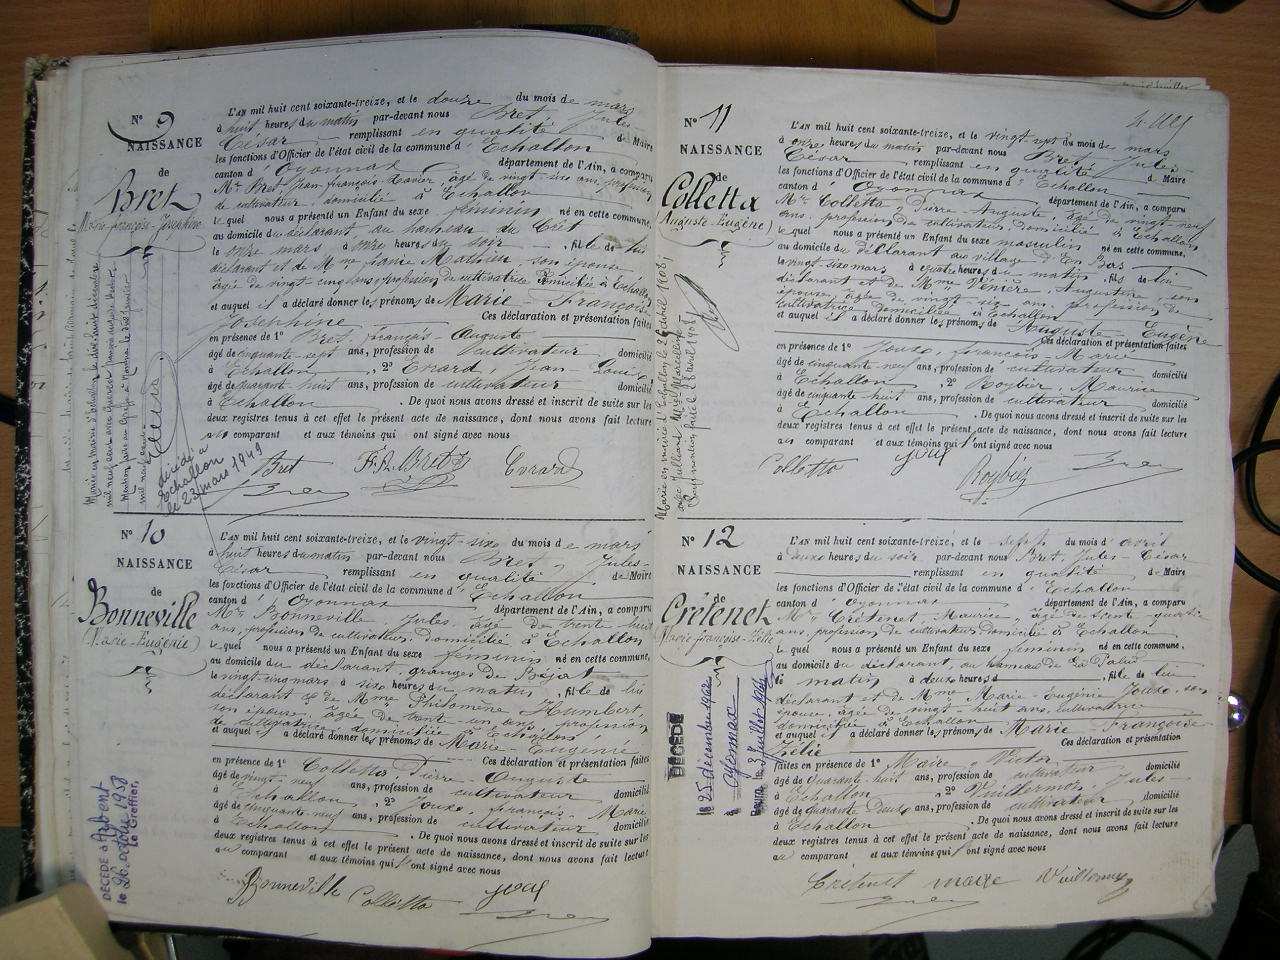 N° 9
NAISSANCE
de
Bret
Marie-Françoise-Joséphine
L'AN mil huit cent soixante-treize, et le douze du mois de mars
à huit heures du matin par-devant nous Bret, Jules
César remplissant en qualité de Maire
les fonctions d'Officier de l'état civil de la commune d'Echallon
canton d'Oyonnax département de l'Ain, a comparu
Mr Bret, Jean-François-Xavier, âgé de vingt-six ans, profession
de cultivateur, domicilié à Echallon
lequel nous a présenté un Enfant du sexe féminin né en cette commune,
au domicile du déclarant au hameau du Crêt
le onze mars à onze heures du soir, fille de lui
déclarant et de Mme Marie Mathieu, son épouse
âgée de vingt-cinq ans, profession de cultivatrice domiciliée à Echallon
et auquel il a déclaré donner les prénoms de Marie-Françoise
Joséphine Ces déclaration et présentation faites
en présence de 1° Bret, François-Auguste
âgé de cinquante-sept ans, profession de cultivateur domicilié
à Echallon, 2° Evrard, Jean-Louis
âgé de quarante-huit ans, profession de cultivateur domicilié
à Echallon. De quoi nous avons dressé et inscrit de suite sur les
deux registres tenus à cet effet le présent acte de naissance, dont nous avons fait lecture
au comparant et aux témoins qui ont signé avec nous
Bret Bret Evrard
Bret
décédée à
Echallon
le 23 mars 1949
N° 10
NAISSANCE
de
Bonneville
(Marie-Eugénie)
L'AN mil huit cent soixante-treize, et le vingt-six du mois de mars
à huit heures du matin par-devant nous Bret, Jules-
César remplissant en qualité de Maire
les fonctions d'Officier de l'état civil de la commune d'Echallon
canton d'Oyonnax département de l'Ain, a comparu
Mr Bonneville Jules, âgé de trente-huit
ans, profession de cultivateur, domicilié à Echallon
lequel nous a présenté un Enfant du sexe féminin né en cette commune,
au domicile du déclarant, granges de
le vingt-cinq mars à six heures du matin, fille de lui
déclarant et de Mme Philomène Humbert
son épouse, âgée de trente-un ans, profession
de cultivatrice domiciliée à Echallon
et auquel il a déclaré donner les prénoms de Marie-Eugénie
Ces déclaration et présentation faites
en présence de 1° Colletta, Pierre Auguste
âgé de vingt-neuf ans, profession de cultivateur domicilié
à Echallon, 2° Joux, François-Marie
âgé de cinquante-neuf ans, profession de cultivateur domicilié
à Echallon. De quoi nous avons dressé et inscrit de suite sur les
deux registres tenus à cet effet le présent acte de naissance, dont nous avons fait lecture
au comparant et aux témoins qui ont signé avec nous
Bonneville Colletta Joux
Bret
DÉCÉDÉ à Arbent
le 26 1958
Le Greffier,
N° 11
NAISSANCE
de
Colletta
(Auguste-Eugène)
L'AN mil huit cent soixante-treize, et le vingt-sept du mois de mars
à onze heures du matin par-devant nous Bret, Jules-
César remplissant en qualité de Maire
les fonctions d'Officier de l'état civil de la commune d'Echallon
canton d'Oyonnax département de l'Ain, a comparu
Mr Colletta Pierre-Auguste, âgé de vingt-neuf
ans, profession de cultivateur, domicilié à Echallon
lequel nous a présenté un Enfant du sexe masculin né en cette commune,
au domicile du déclarant au village d'En Bas
le vingt-six mars à quatre heures du matin, fils de lui
déclarant et de Mme Venière, Augustine, son
épouse, âgée de vingt-six ans, profession de
cultivatrice domiciliée à Echallon
et auquel il a déclaré donner les prénoms de Auguste-Eugène
Ces déclaration et présentation faites
en présence de 1° Joux, François-Marie
âgé de cinquante-neuf ans, profession de cultivateur domicilié
à Echallon, 2° Roybier, Maurice
âgé de cinquante-huit ans, profession de cultivateur domicilié
à Echallon. De quoi nous avons dressé et inscrit de suite sur les
deux registres tenus à cet effet le présent acte de naissance, dont nous avons fait lecture
au comparant et aux témoins qui l'ont signé avec nous
Colletta Joux
Roybier Bret
N° 12
NAISSANCE
de
Crétenet
(Marie-Françoise-Zélie)
L'AN mil huit cent soixante-treize, et le sept du mois d'avril
à deux heures du soir par-devant nous Bret, Jules-César
remplissant en qualité de Maire
les fonctions d'Officier de l'état civil de la commune d'Echallon
canton d'Oyonnax département de l'Ain, a comparu
Mr Crétenet, Maurice, âgé de trente-quatre
ans, profession de cultivateur domicilié à Echallon
lequel nous a présenté un Enfant du sexe féminin né en cette commune,
au domicile du déclarant, au hameau de La Palud
le matin à deux heures d, fille de lui
déclarant et de Mme Marie-Eugénie Joux, son
épouse, âgée de vingt-huit ans, cultivatrice
domiciliée à Echallon
et auquel il a déclaré donner les prénoms de Marie-Françoise
Zélie Ces déclaration et présentation
faites en présence de 1° Maire, Victor
âgé de quarante-huit ans, profession de cultivateur domicilié
à Echallon, 2° Vuillermoz Jules
âgé de quarante-deux ans, profession de cultivateur domicilié
à Echallon. De quoi nous avons dressé et inscrit de suite sur les
deux registres tenus à cet effet le présent acte de naissance, dont nous avons fait lecture
au comparant et aux témoins qui ont signé avec nous
Crétenet Maire Vuillermoz
Bret
DÉCÉDÉ
le 25 décembre 1962
à Oyonnax